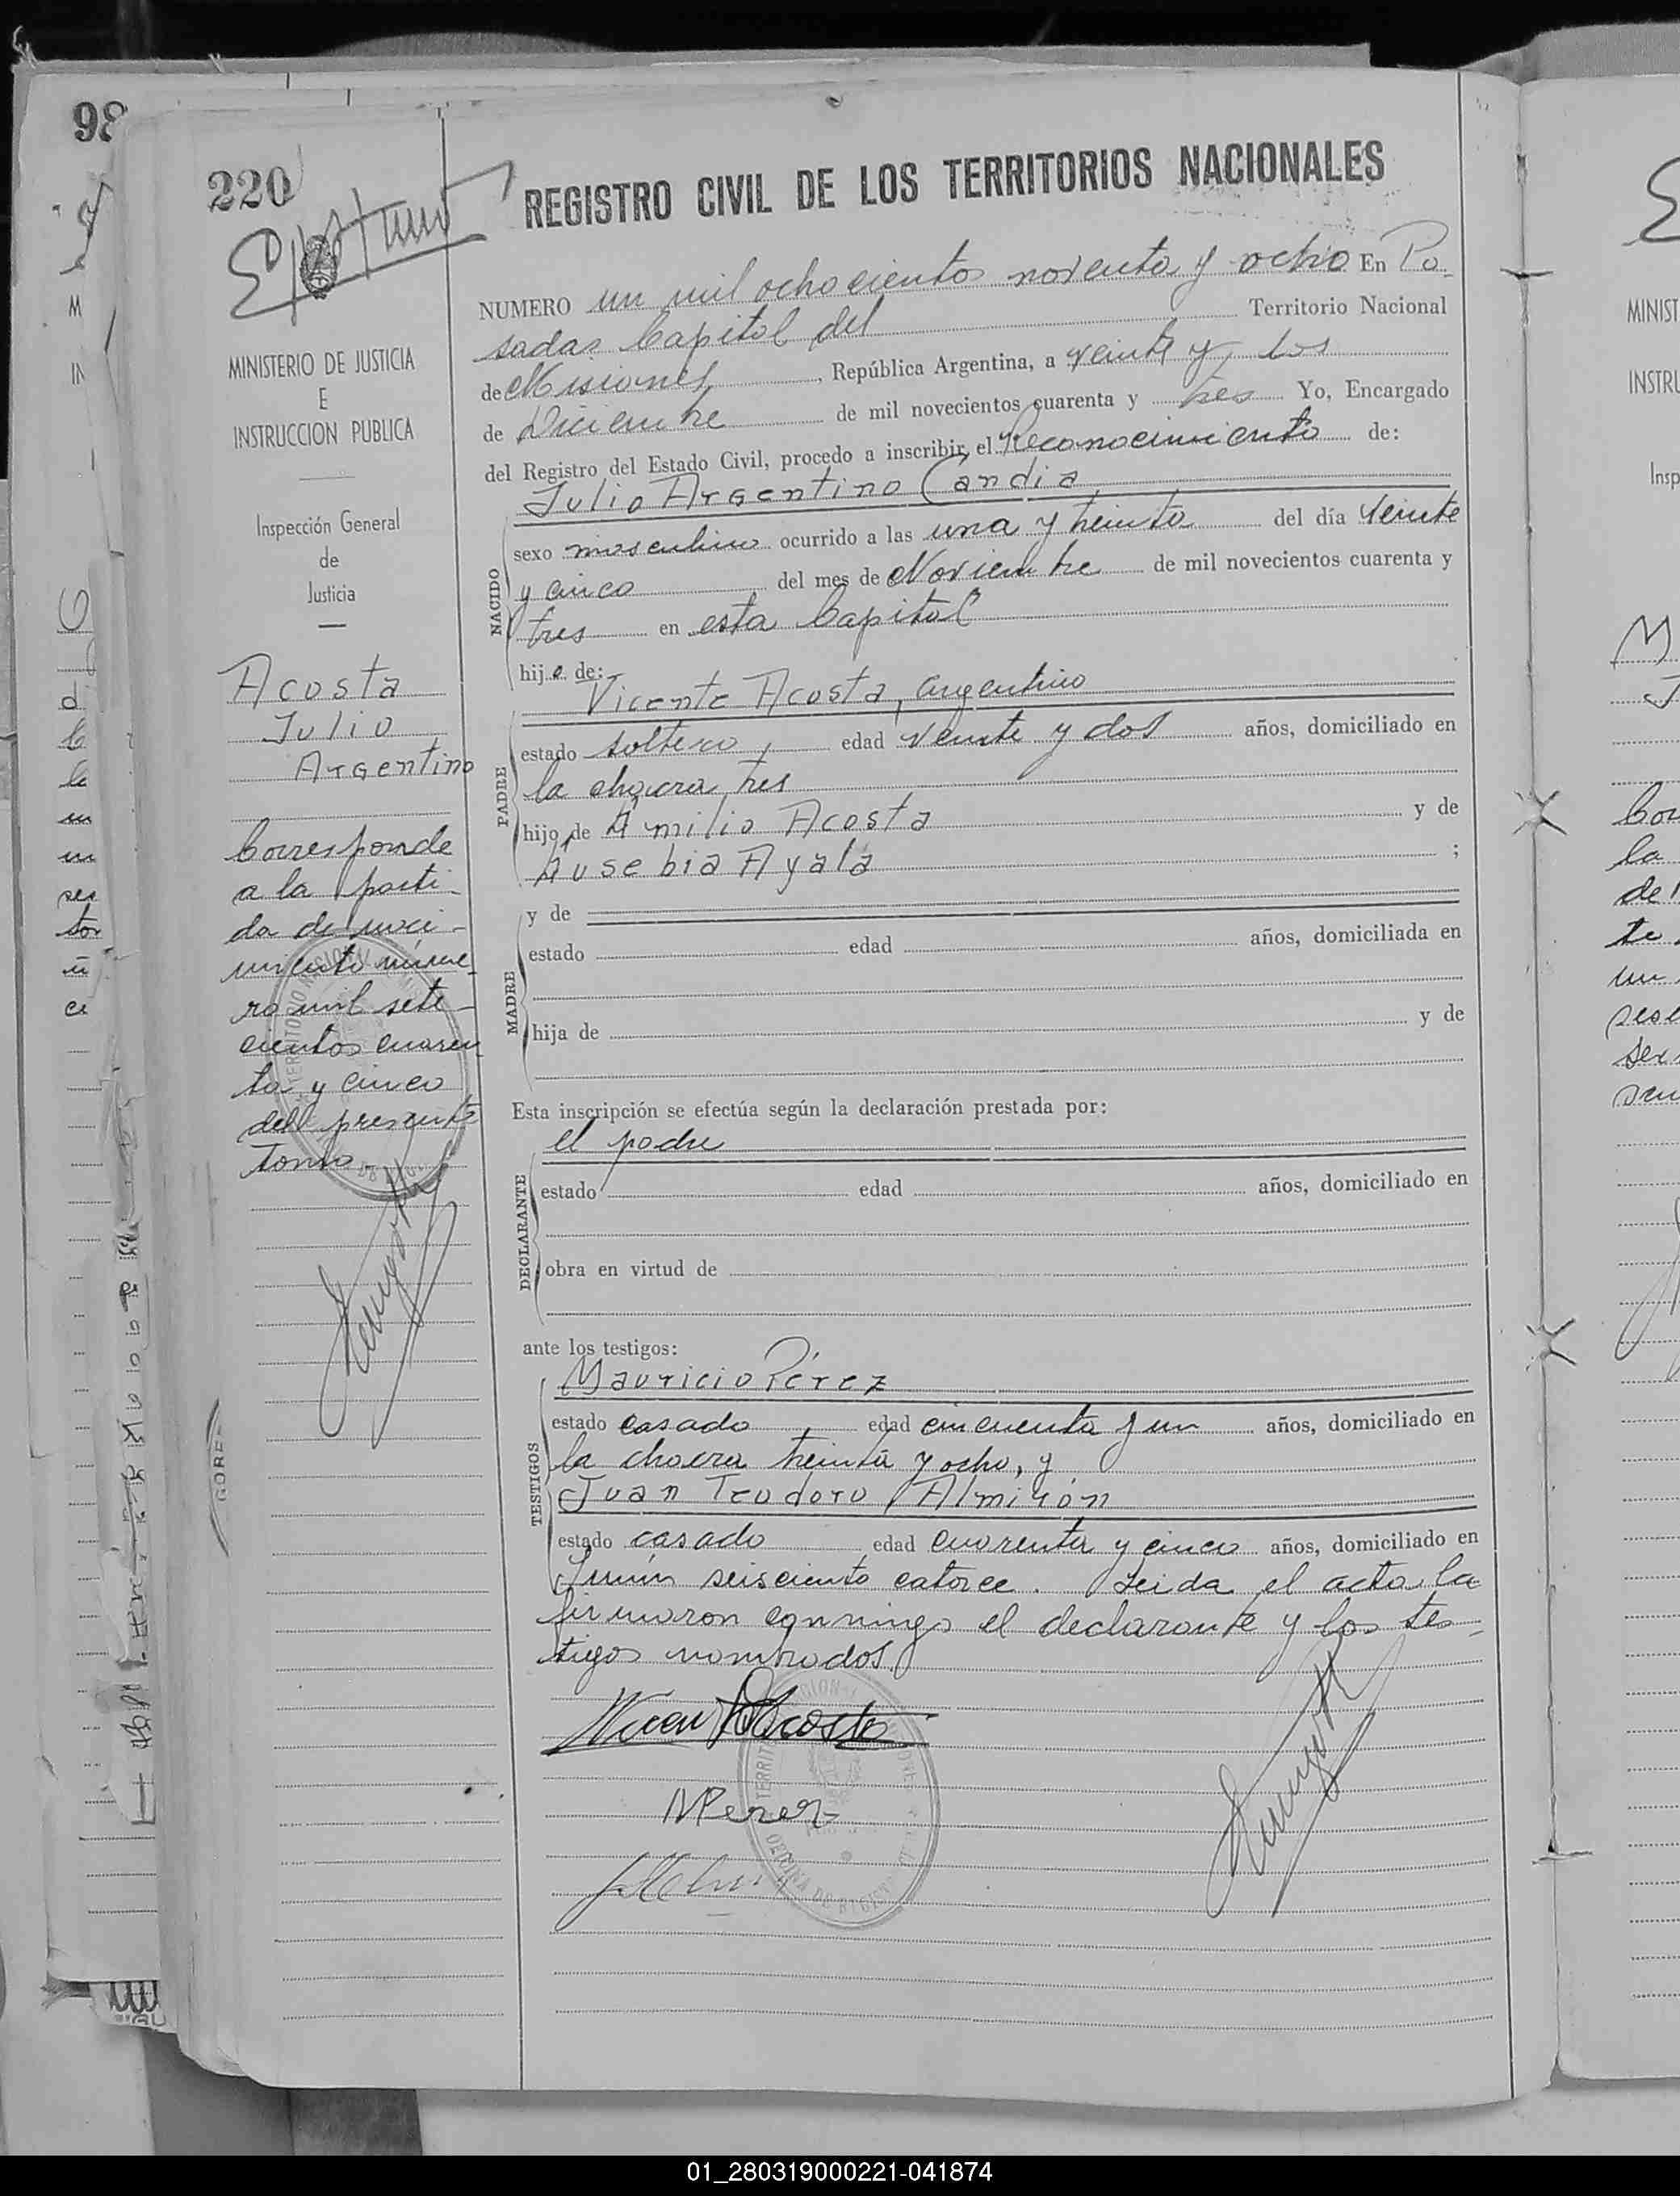 98
220
REGISTRO CIVIL DE LOS TERRITORIOS NACIONALES
NUMERO un mil ochocientos noventa y ocho En Po
sadas Capital del Territorio Nacional
de Misiones, República Argentina, a veinte y dos
de Diciembre de mil novecientos cuarenta y tres Yo, Encargado
del Registro del Estado Civil, procedo a inscribir, el Reconocimiento de:
Julio Argentino Candia
NACIDO
sexo masculino ocurrido a las una y treinta del día veinte
y cinco del mes de Noviembre de mil novecientos cuarenta y
tres en esta Capital
hijo de:
Vicente Acosta, argentino
PADRE
estado soltero, edad veinte y dos años, domiciliado en
la chacra tres
hijo de Emilio Acosta y de
Eusebia Ayala ;
y de
MADRE
estado edad años, domiciliada en
hija de y de
Esta inscripción se efectúa según la declaración prestada por:
el padre
DECLARANTE
estado edad años, domiciliado en
obra en virtud de
ante los testigos:
Mauricio Pérez
TESTIGOS
estado casado edad cincuenta y un años, domiciliado en
la chacra treinta y ocho, y
Juan Teodoro Almirón
estado casado edad cuarenta y cinco años, domiciliado en
Junín seisciento catorce. Leida el acta la
firmaron conmigo el declarante y los tes-
tigos nombrados.
Vicente Acosta
MPerez
MINISTERIO DE JUSTICIA
E
INSTRUCCION PUBLICA
Inspección General
de
Justicia
Acosta
Julio
Argentino
Corresponde
a la parti-
da de naci-
miento núme-
ro mil sete-
cientos cuaren
ta y cinco
del presente
Tomo
01_280319000221-041874